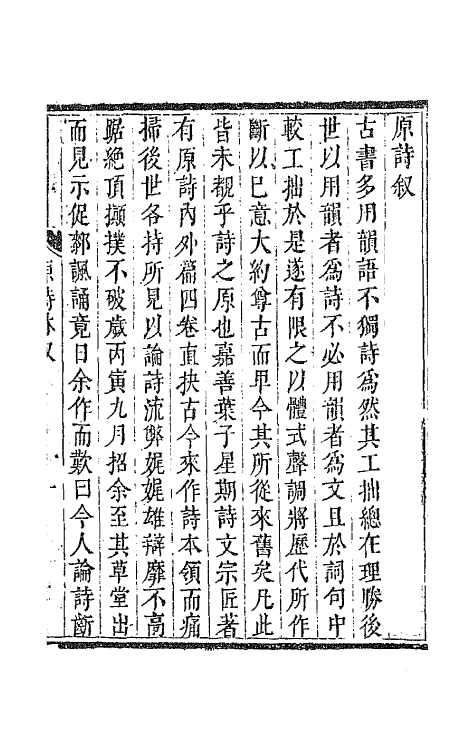 原詩叙
古書多用韻語不獨詩爲然其工拙總在理勝後
世以用韻者爲詩不必用韻者爲文且於詞句中
較工拙於是遂有限之以體式聲調將歷代所作
斷以已意大約尊古而卑今其所從來舊矣凡此
皆未覩乎詩之原也嘉善葉子星期詩文宗匠著
有原詩內外篇四卷直抉古今來作詩本領而痛
掃後世各持所見以論詩流弊娓娓雄辯靡不高
踞絕頂擷撲不破歲丙寅九月招余至其草堂出
而見示促膝諷誦竟日余作而歎曰今人論詩齗
原詩 叙
一